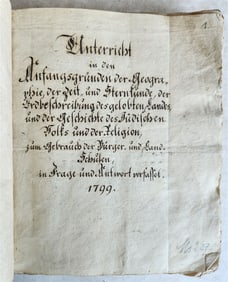 1.
Unterricht
in den
Anfangsgründen der Geogra-
phie, der Zeit, und Sternkunde, der
Erdbeschreibung des gelobten Landes
und der Geschichte des Jüdischen
Volks und der Religion,
zum Gebrauch der Bürger, und Land-
Schulen,
in Frage und Antwort verfasset.
1799.